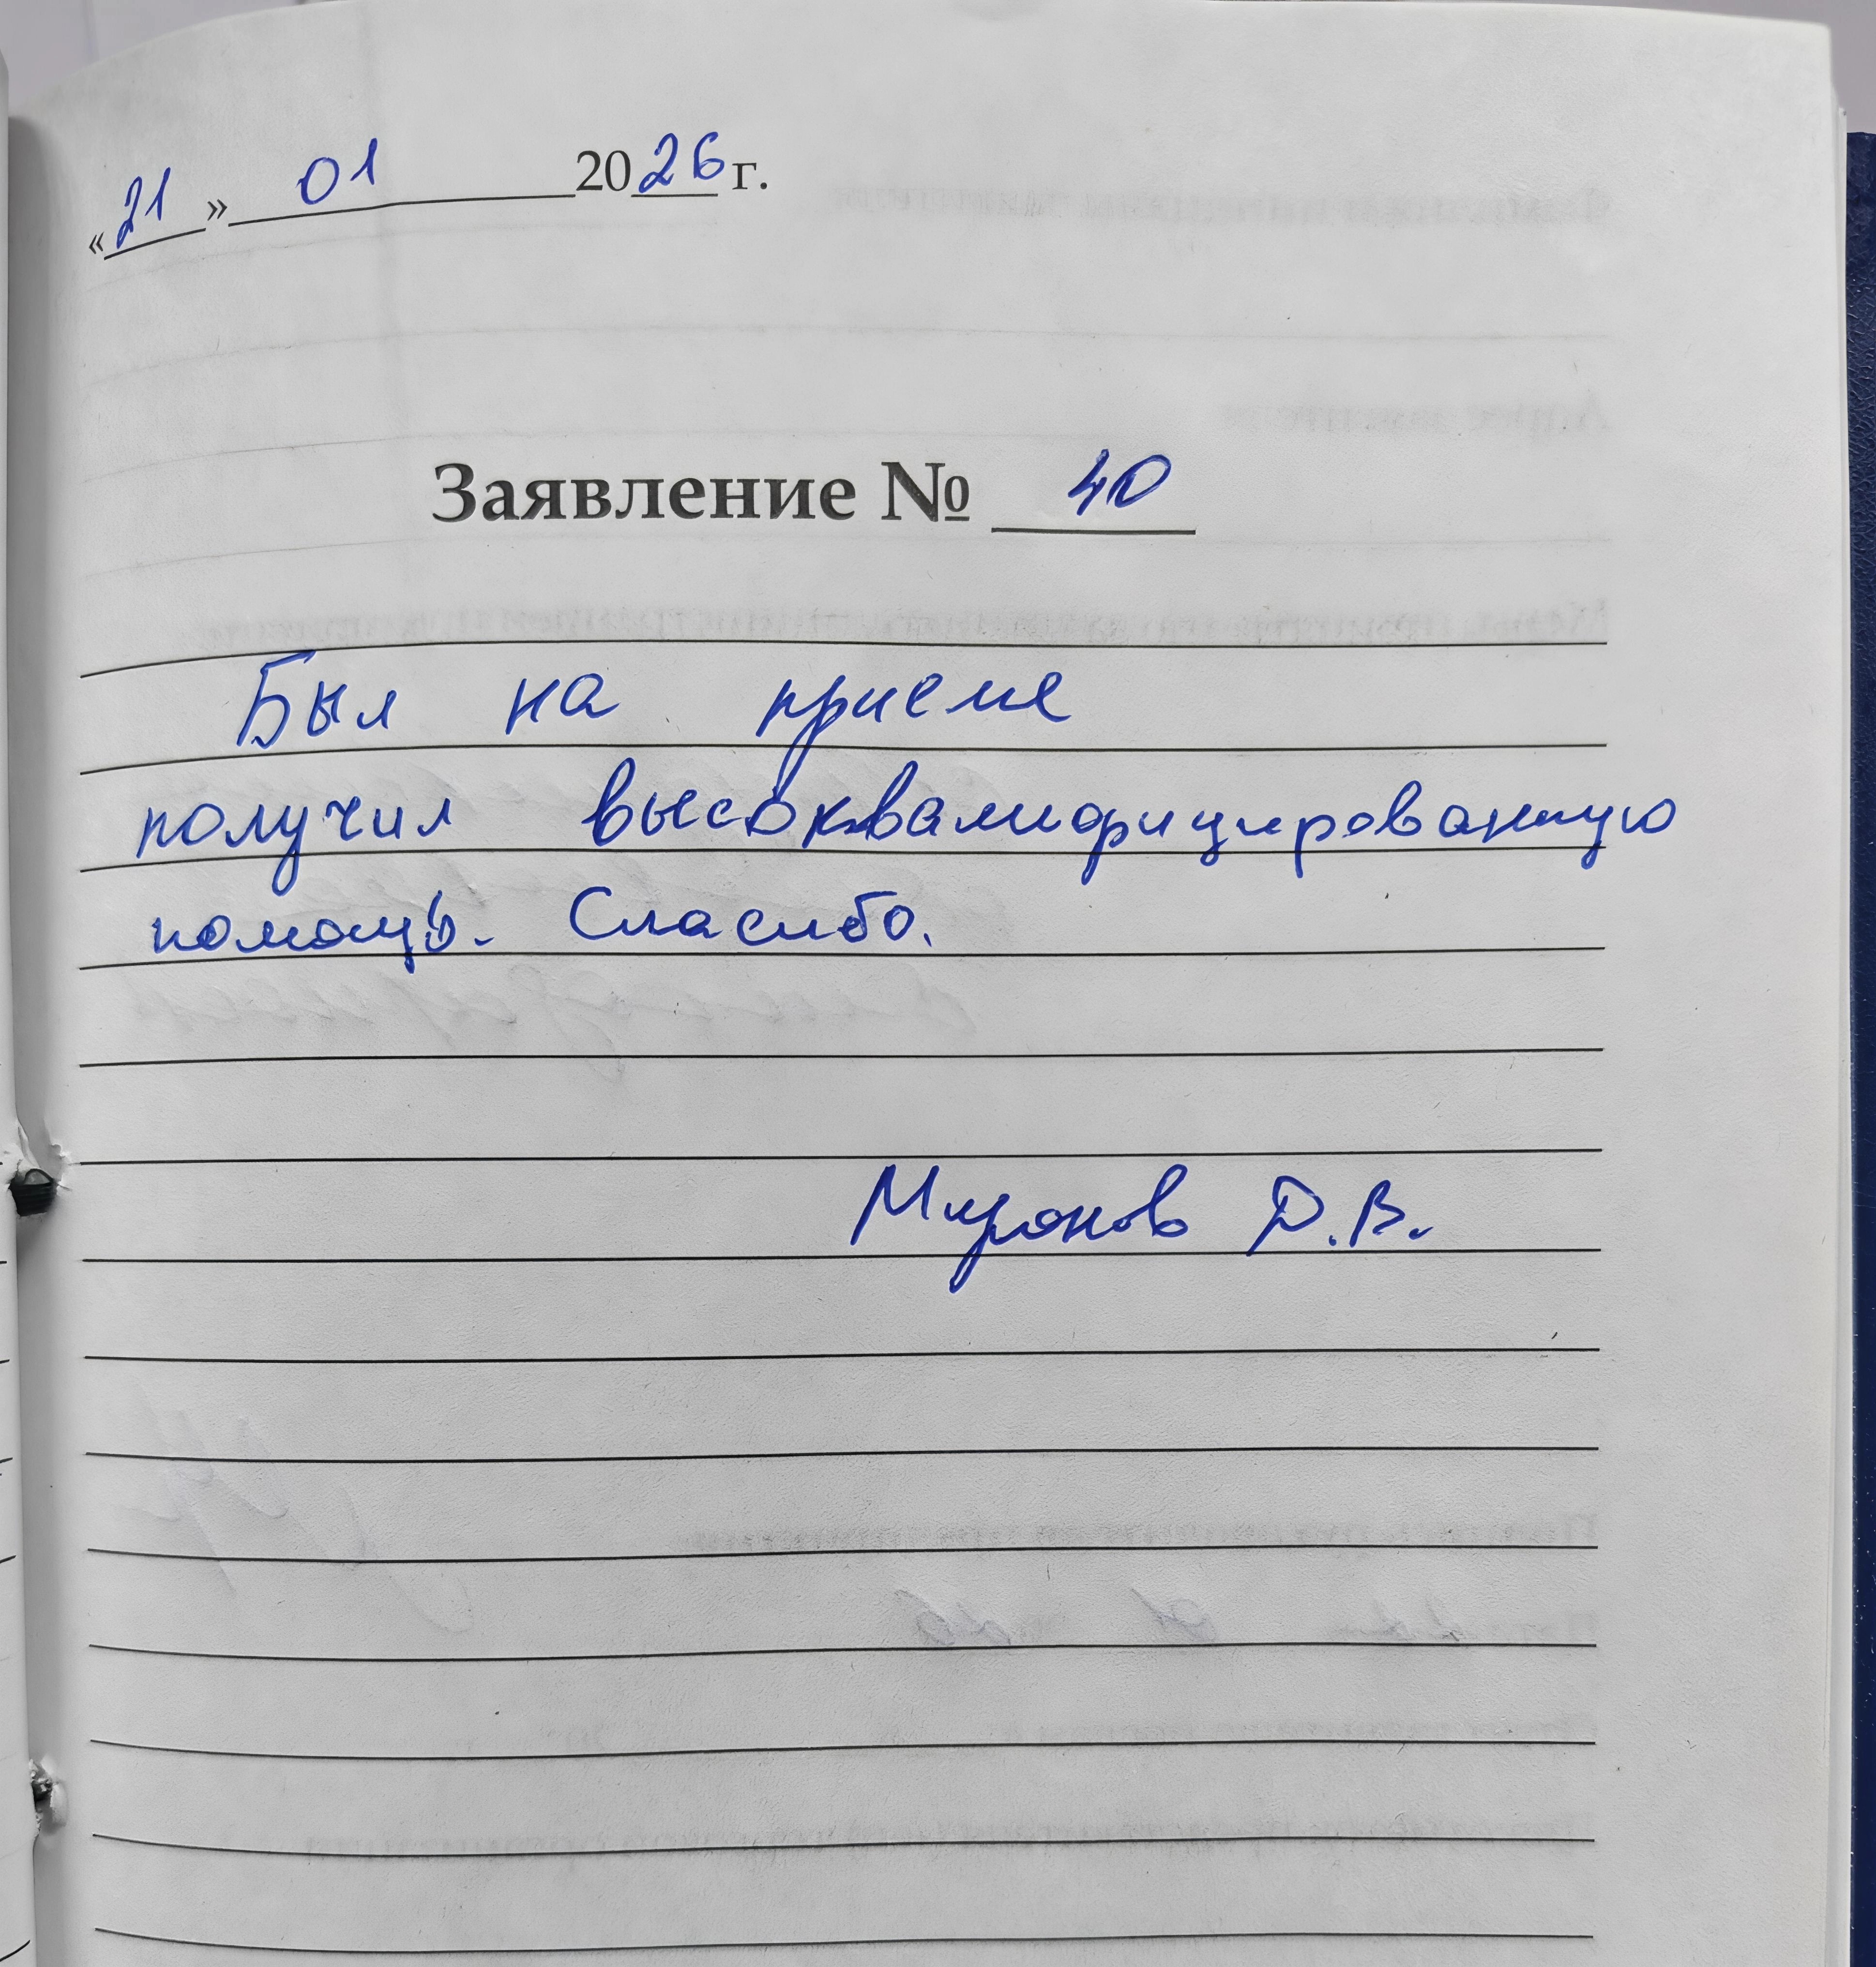 «21» 01 2026 г.
Заявление № 40
Был на приеме
получил высоквалифицированную
помощь. Спасибо.
Миронов Д.В.